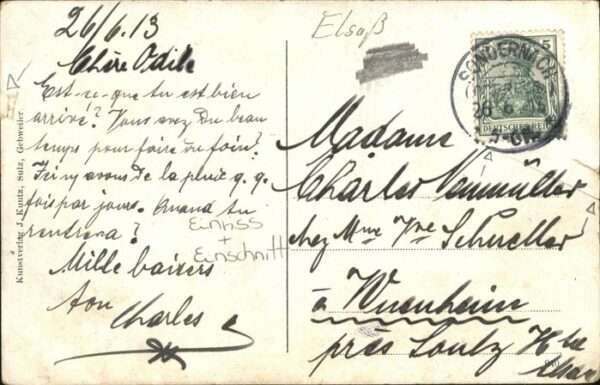 26/6.13
Chère Odile
Est-ce-que tu est bien
arrivé? Vous avez du beau
temps pour faire du foin?
Ici ny avons de la pluie q.q.
fois par jours. Quand tu
rentrera?
Mille baizers
ton
Charles
Einriss
+
Einschnitt
Kunstverlag J. Kuntz, Sulz, Gebweiler
Elsaß
SONDERNACH
26 6
5
DEUTSCHES REICH
Madame
Charles
chez Mme Vve Schueller
à Wuenheim
près Soultz Hte
Elsass